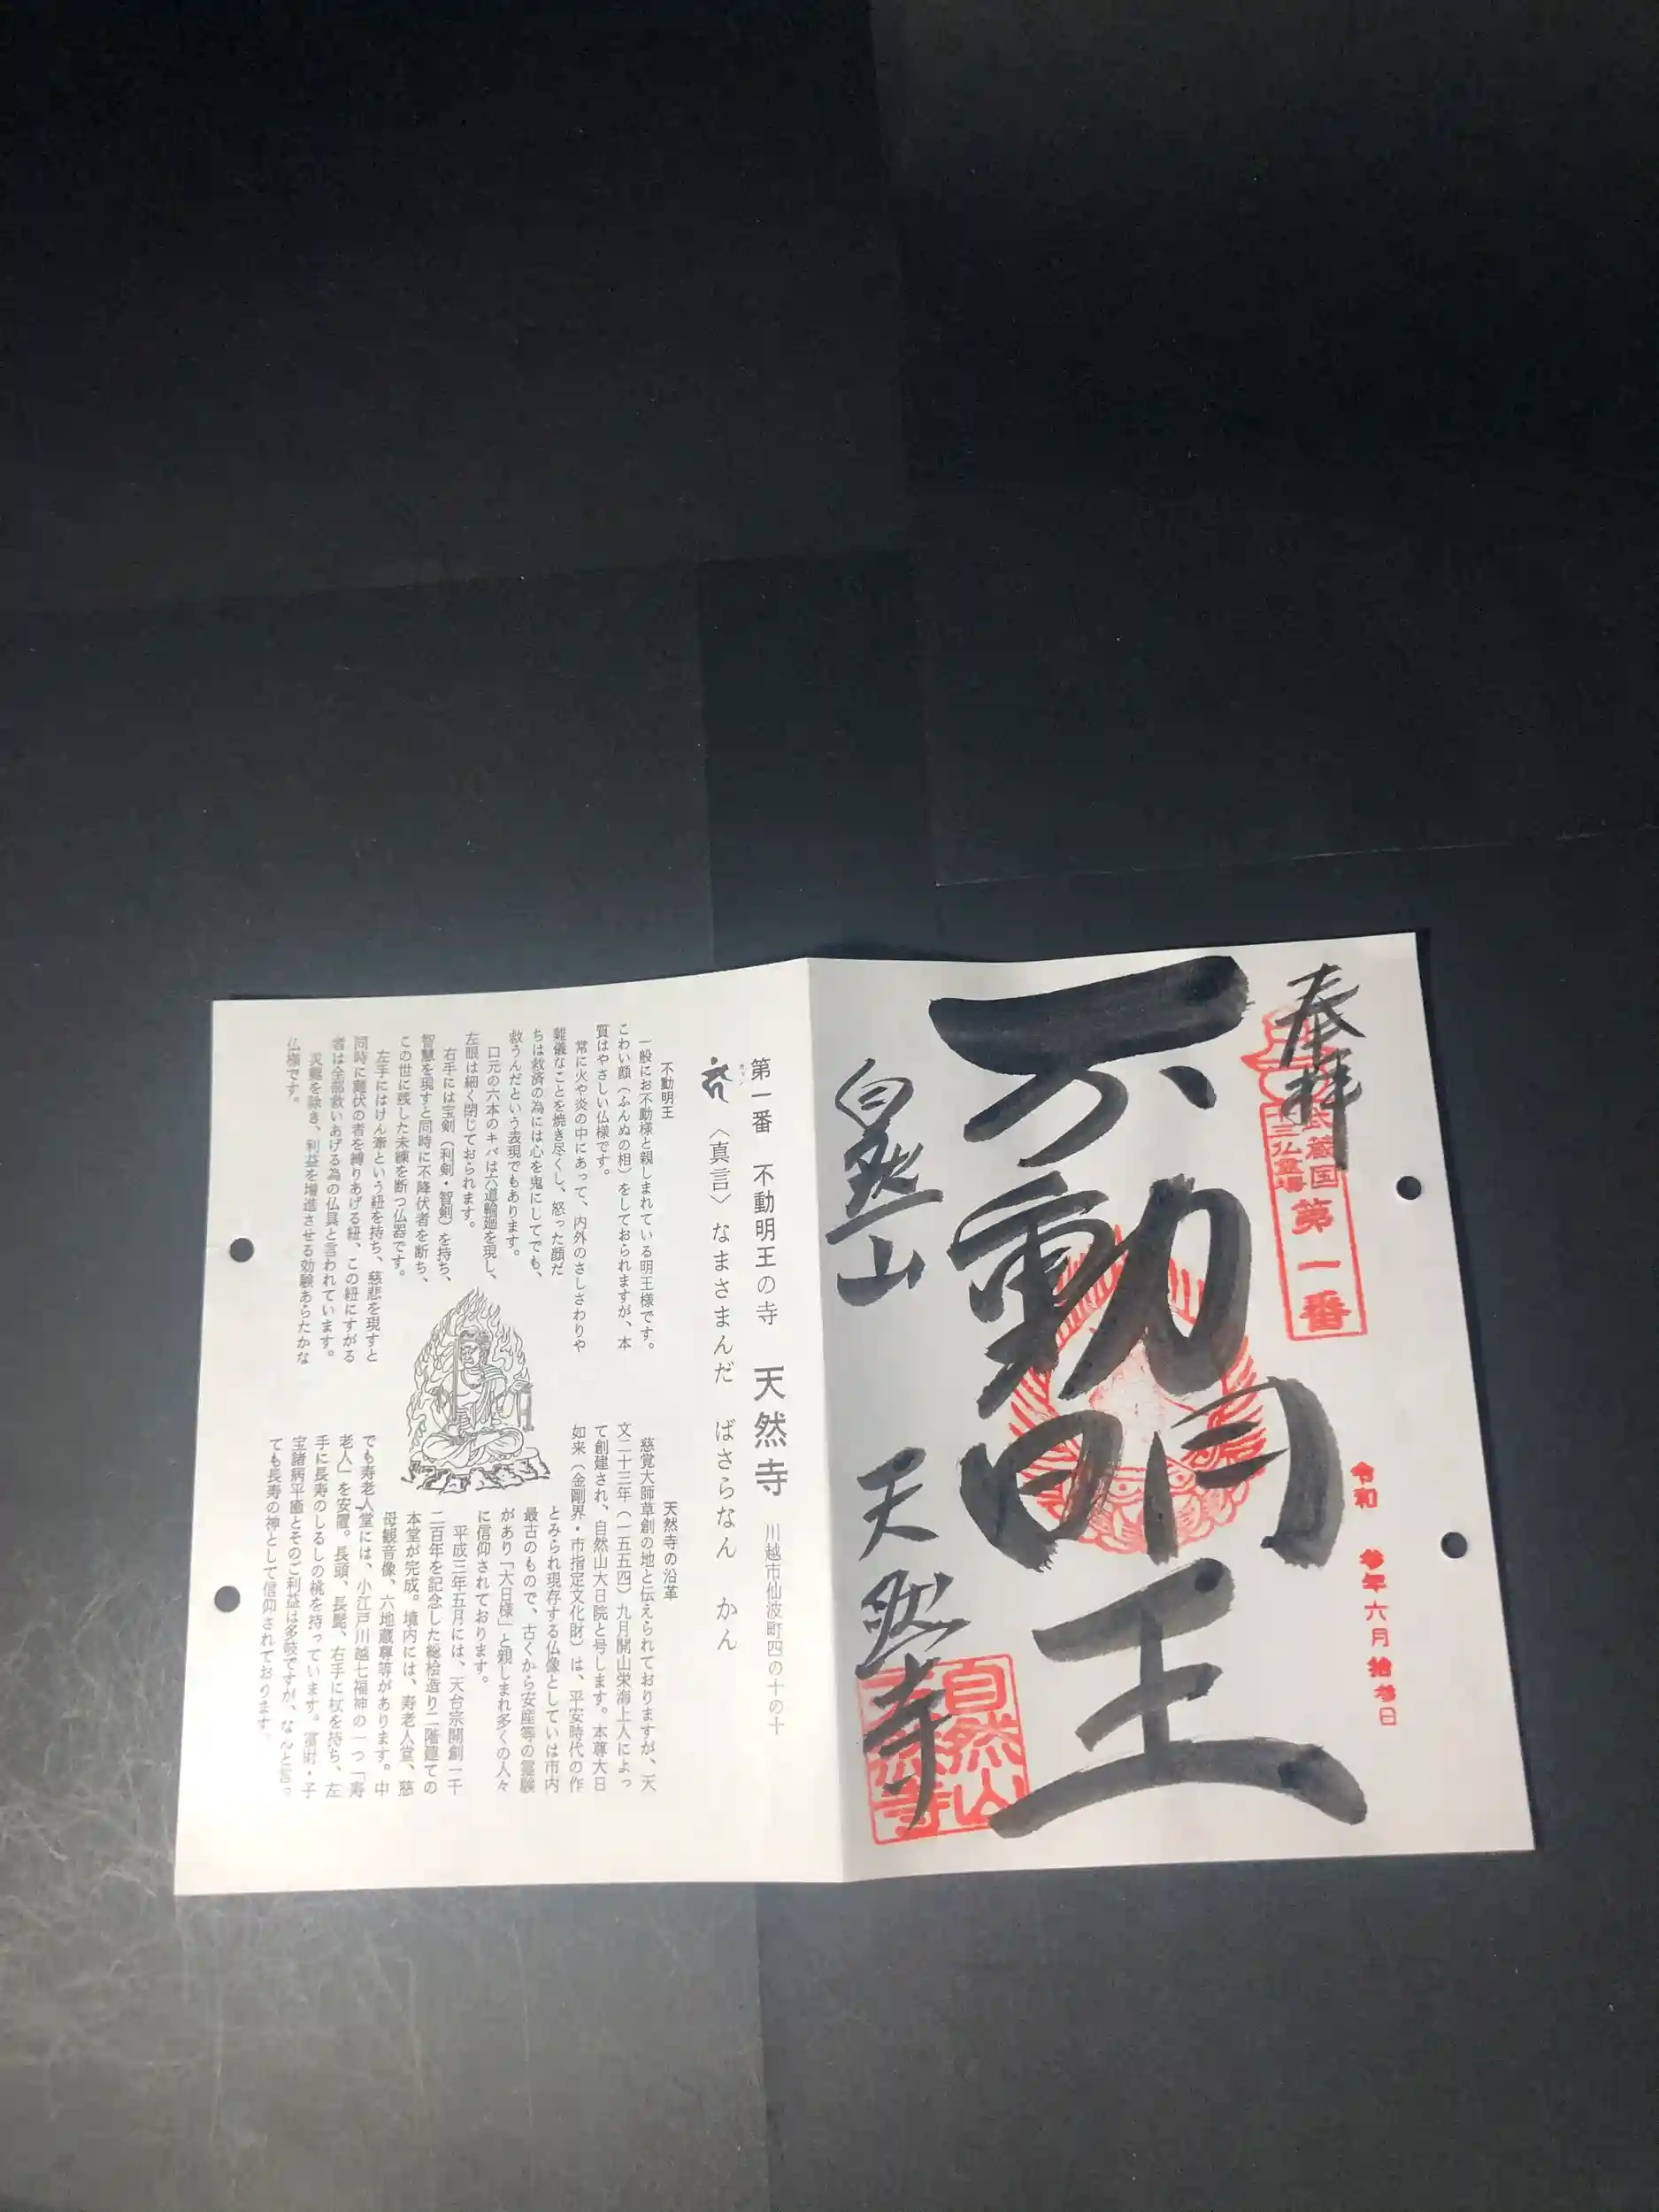 奉拝
武蔵国
十三仏霊場
第一番
令和 参年六月拾参日
不動明王
自然山 天然寺
自然山
天然寺
第一番 不動明王の寺 天然寺 川越市仙波町四の十の十
カーン
〈真言〉なまさまんだ ばさらなん かん
不動明王
一般にお不動様と親しまれている明王様です。
こわい顔(ふんぬの相)をしておられますが、本
質はやさしい仏様です。
常に火や炎の中にあって、内外のさしさわりや
難儀なことを焼き尽くし、怒った顔だ
ちは救済の為には心を鬼にしてでも、
救うんだという表現でもあります。
口元の六本のキバは六道輪廻を現し、
左眼は細く閉じておられます。
右手には宝剣(利剣・智剣)を持ち、
智慧を現すと同時に不降伏者を断ち、
この世に残した未練を断つ仏器です。
左手にはけん牽という紐を持ち、慈悲を現すと
同時に難伏の者を縛りあげる紐、この紐にすがる
者は全部救いあげる為の仏具と言われています。
災難を除き、利益を増進させる効験あらたかな
仏様です。
天然寺の沿革
慈覚大師草創の地と伝えられておりますが、天
文二十三年(一五五四)九月開山栄海上人によっ
て創建され、自然山大日院と号します。本尊大日
如来(金剛界・市指定文化財)は、平安時代の作
とみられ現存する仏像としていは市内
最古のもので、古くから安産等の霊験
があり「大日様」と親しまれ多くの人々
に信仰されております。
平成三年五月には、天台宗開創一千
二百年を記念した総桧造り二階建ての
本堂が完成。境内には、寿老人堂、慈
母観音像、六地蔵尊等があります。中
でも寿老人堂には、小江戸川越七福神の一つ「寿
老人」を安置。長頭、長髭、右手に杖を持ち、左
手に長寿のしるしの桃を持っています。富財・子
宝諸病平癒とそのご利益は多岐ですが、なんと言っ
ても長寿の神として信仰されております。